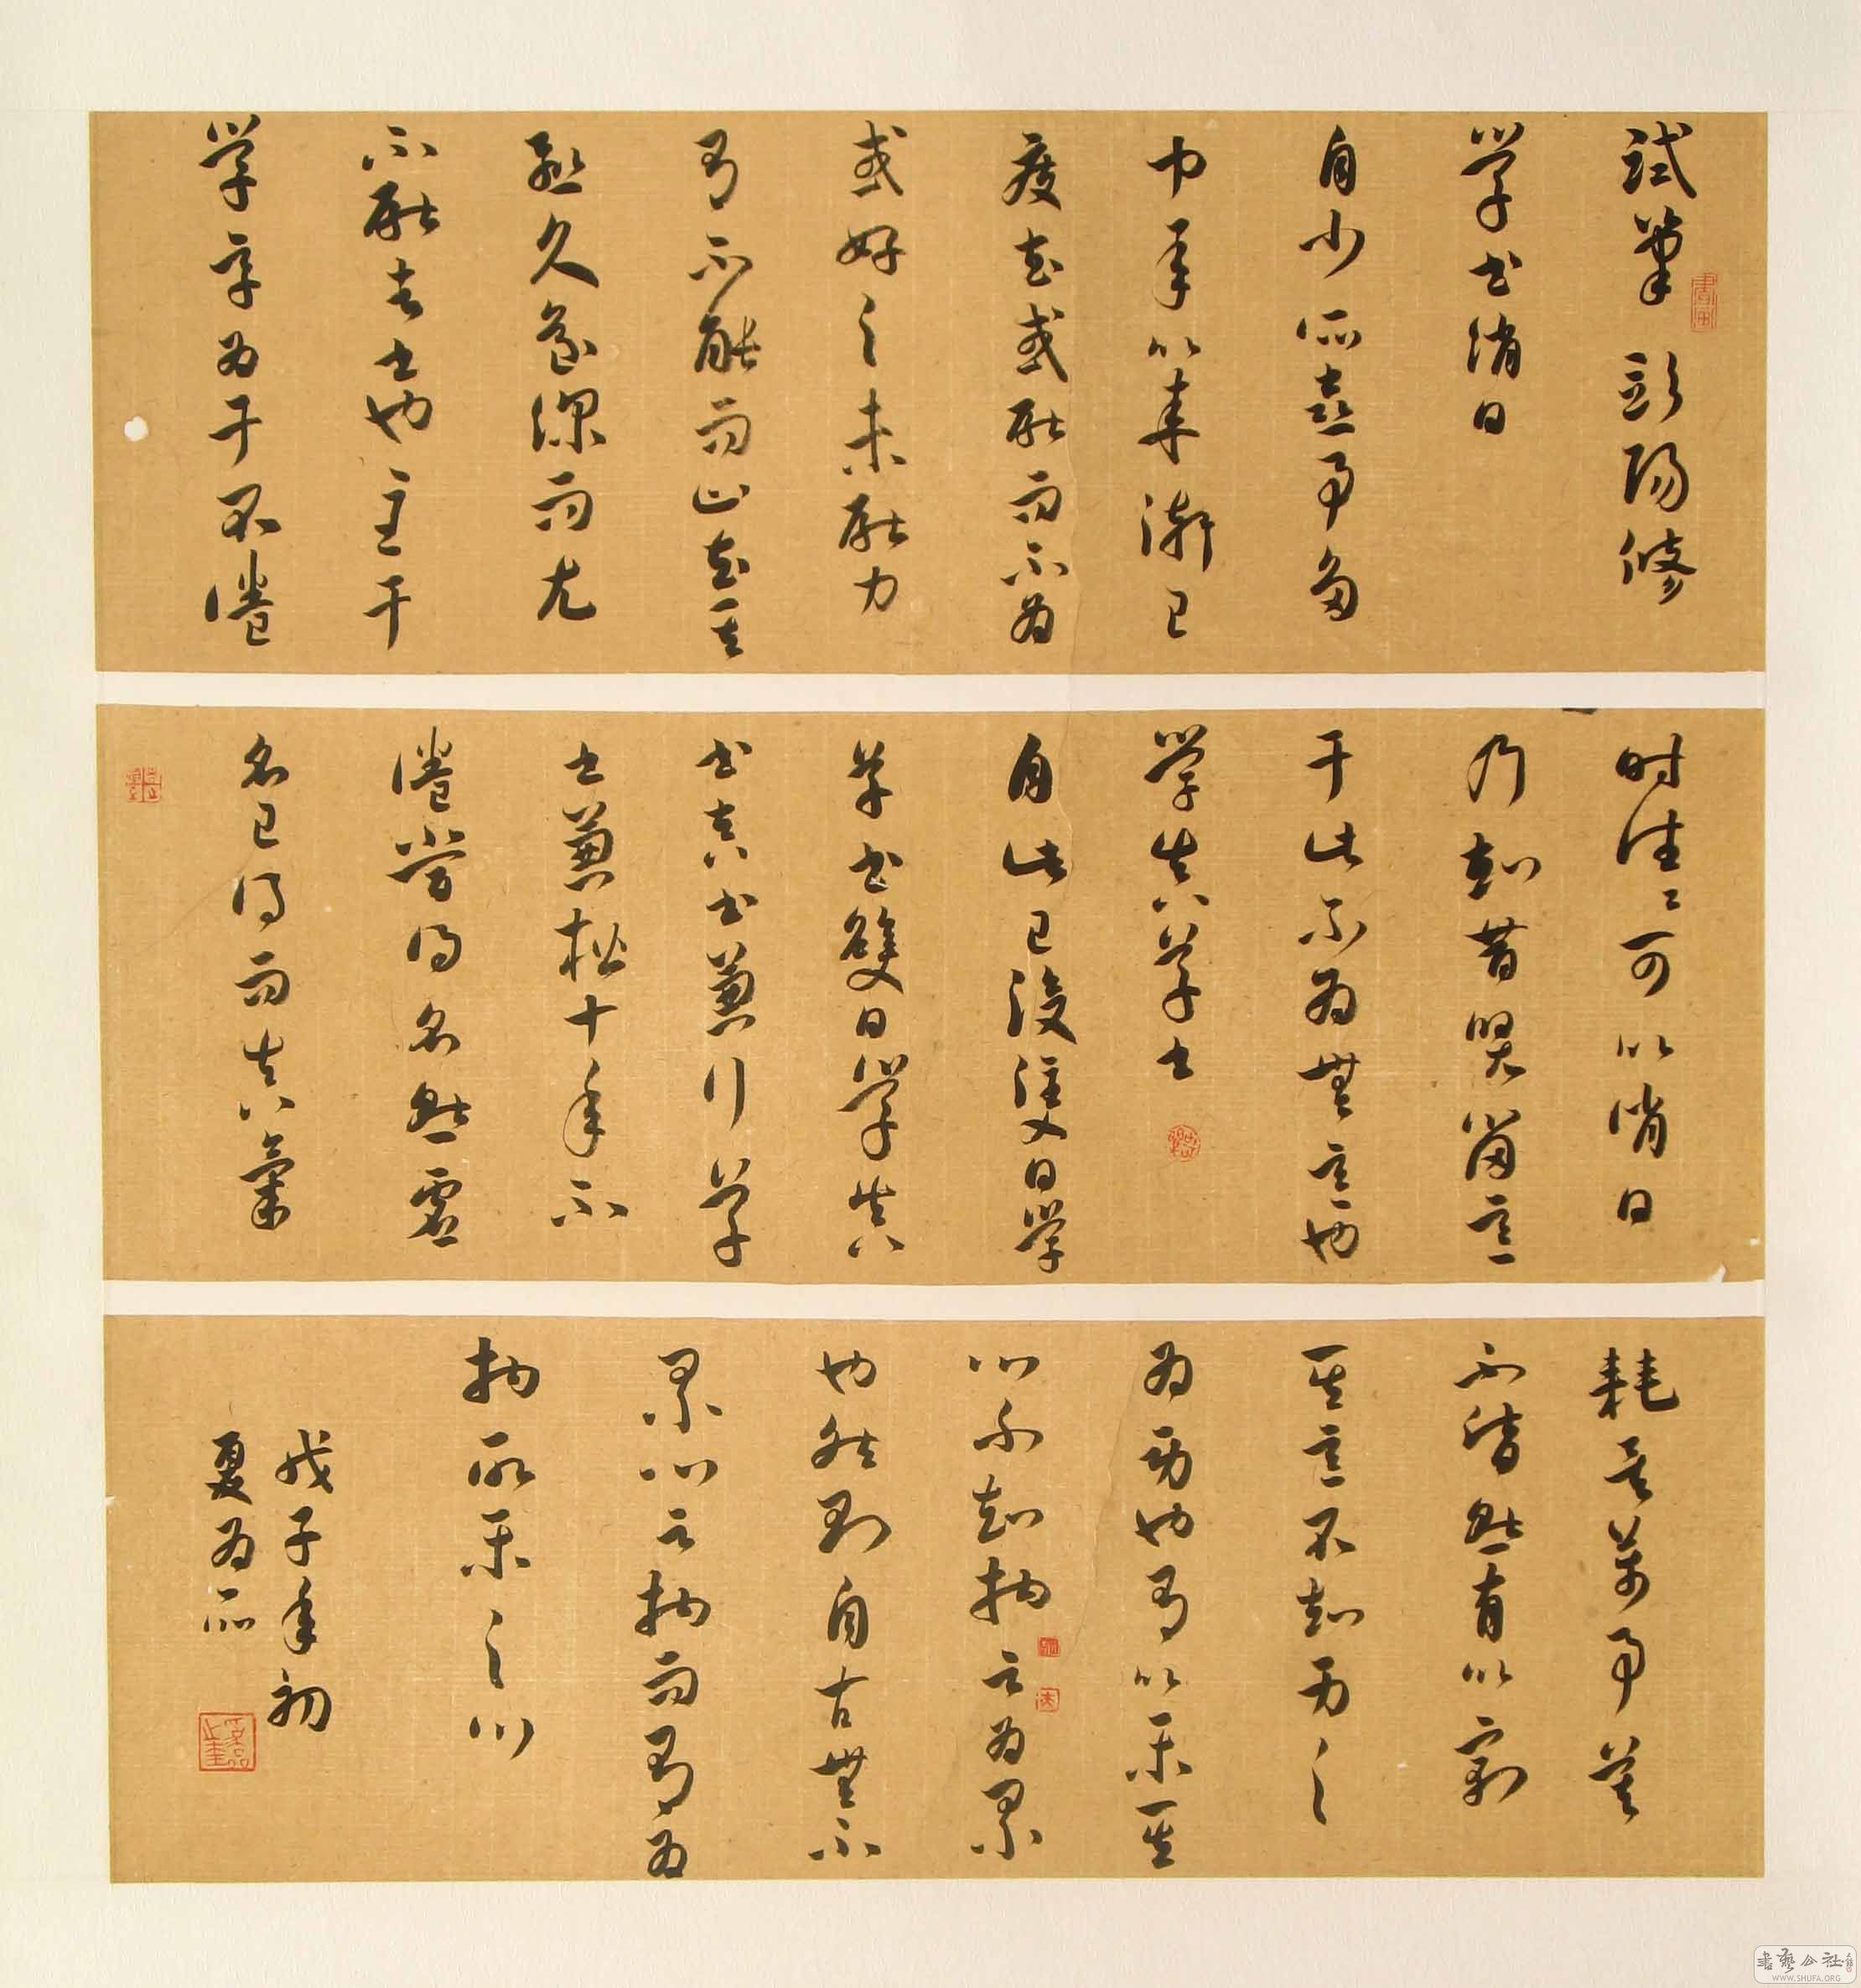 試筆 歐陽修
學書消日
自少所喜事多
中年以來漸已
廢去或厭而不為
或好之未厭力
有不能而止者其
愈久益深而尤
不厭者書也至于
學字為于不倦
時往〻可以消日
乃知昔賢留意
于此不為無意也
學真草書
自此已後隻日學
草書雙日學真
書真書兼行草
書兼楷十年不
倦當得名然虛
名已得而真氣
耗矣萬事莫
不皆然有以寓
其意不知身之
為勞也有以樂其
心不知物之為累
也然則自古無不
累心之物而有為
物所樂之心
戊子年初
夏為所
書藝公社
WWW.SHUFA.ORG